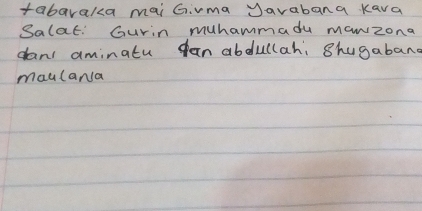 tabaraka mai Girma Yarabana Kara
Salati Gurin muhammadu manzona
dan aminatu dan abdullahi Shugabana
maulana